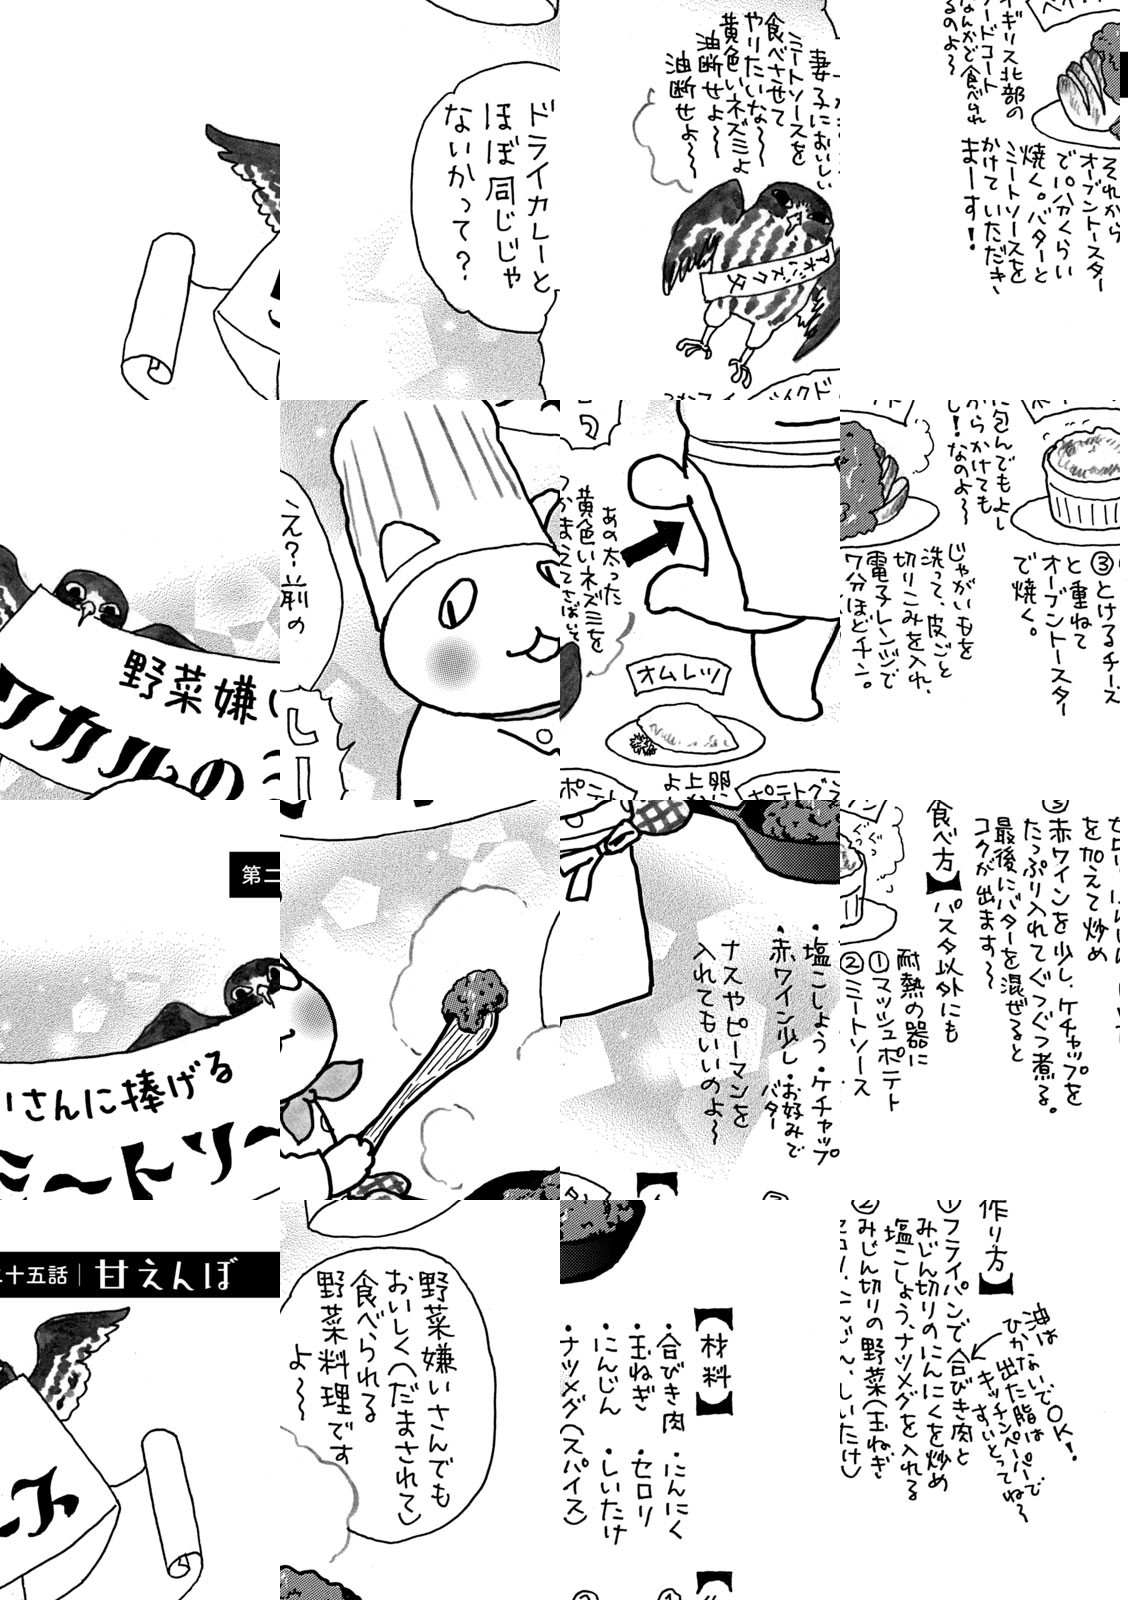 第二
十五話｜甘えんぼ
野菜嫌い
いさんに捧げる
ワカルの
ミートソ
ース
ドライカレーと
ほぼ同じじゃ
ないかって？
え？前の
野菜嫌いさんでも
おいしく（だまされて）
食べられる
野菜料理です
よ〜
妻子においしい
ミートソースを
食べさせて
やりたいな〜
黄色いネズミよ
油断せよ〜
油断せよ〜
アオバズク父
あの太った
黄色いネズミを
つかまえてそばいて
オムレツ
ポテト
ポテトグラ
・塩こしょう・ケチャップ
・赤ワイン少し・お好みで
バター
ナスやピーマンを
入れてもいいのよ〜
【材料】
・合びき肉・にんにく
・玉ねぎ・セロリ
・にんじん・しいたけ
・ナツメグ（スパイス）
イギリス北部の
フードコート
なんかで食べられ
るのよ〜
それから
オーブントースター
で10分くらい
焼く。バターと
ミートソースを
かけていただき
まーす！
に包んでもよし
からかけても
し！なのよ〜
じゃがいもを
洗って、皮ごと
切りこみを入れ、
電子レンジで
7分ほどチン。
③とけるチーズ
と重ねて
オーブントースター
で焼く。
ぐつぐつ
食べ方】
パスタ以外にも
耐熱の器に
①マッシュポテト
②ミートソース
を加えて炒め
③赤ワインを少し、ケチャップを
たっぷり入れてぐつぐつ煮る。
最後にバターを混ぜると
コクが出ます〜
作り方】
①フライパンで合びき肉と
みじん切りのにんにくを炒め
塩こしょう、ナツメグを入れる
②みじん切りの野菜（玉ねぎ
セロリ、にんじん、しいたけ）
油は
ひかないでOK！
出た脂はペーパーで
キッチンペーパーで
すいとってね〜